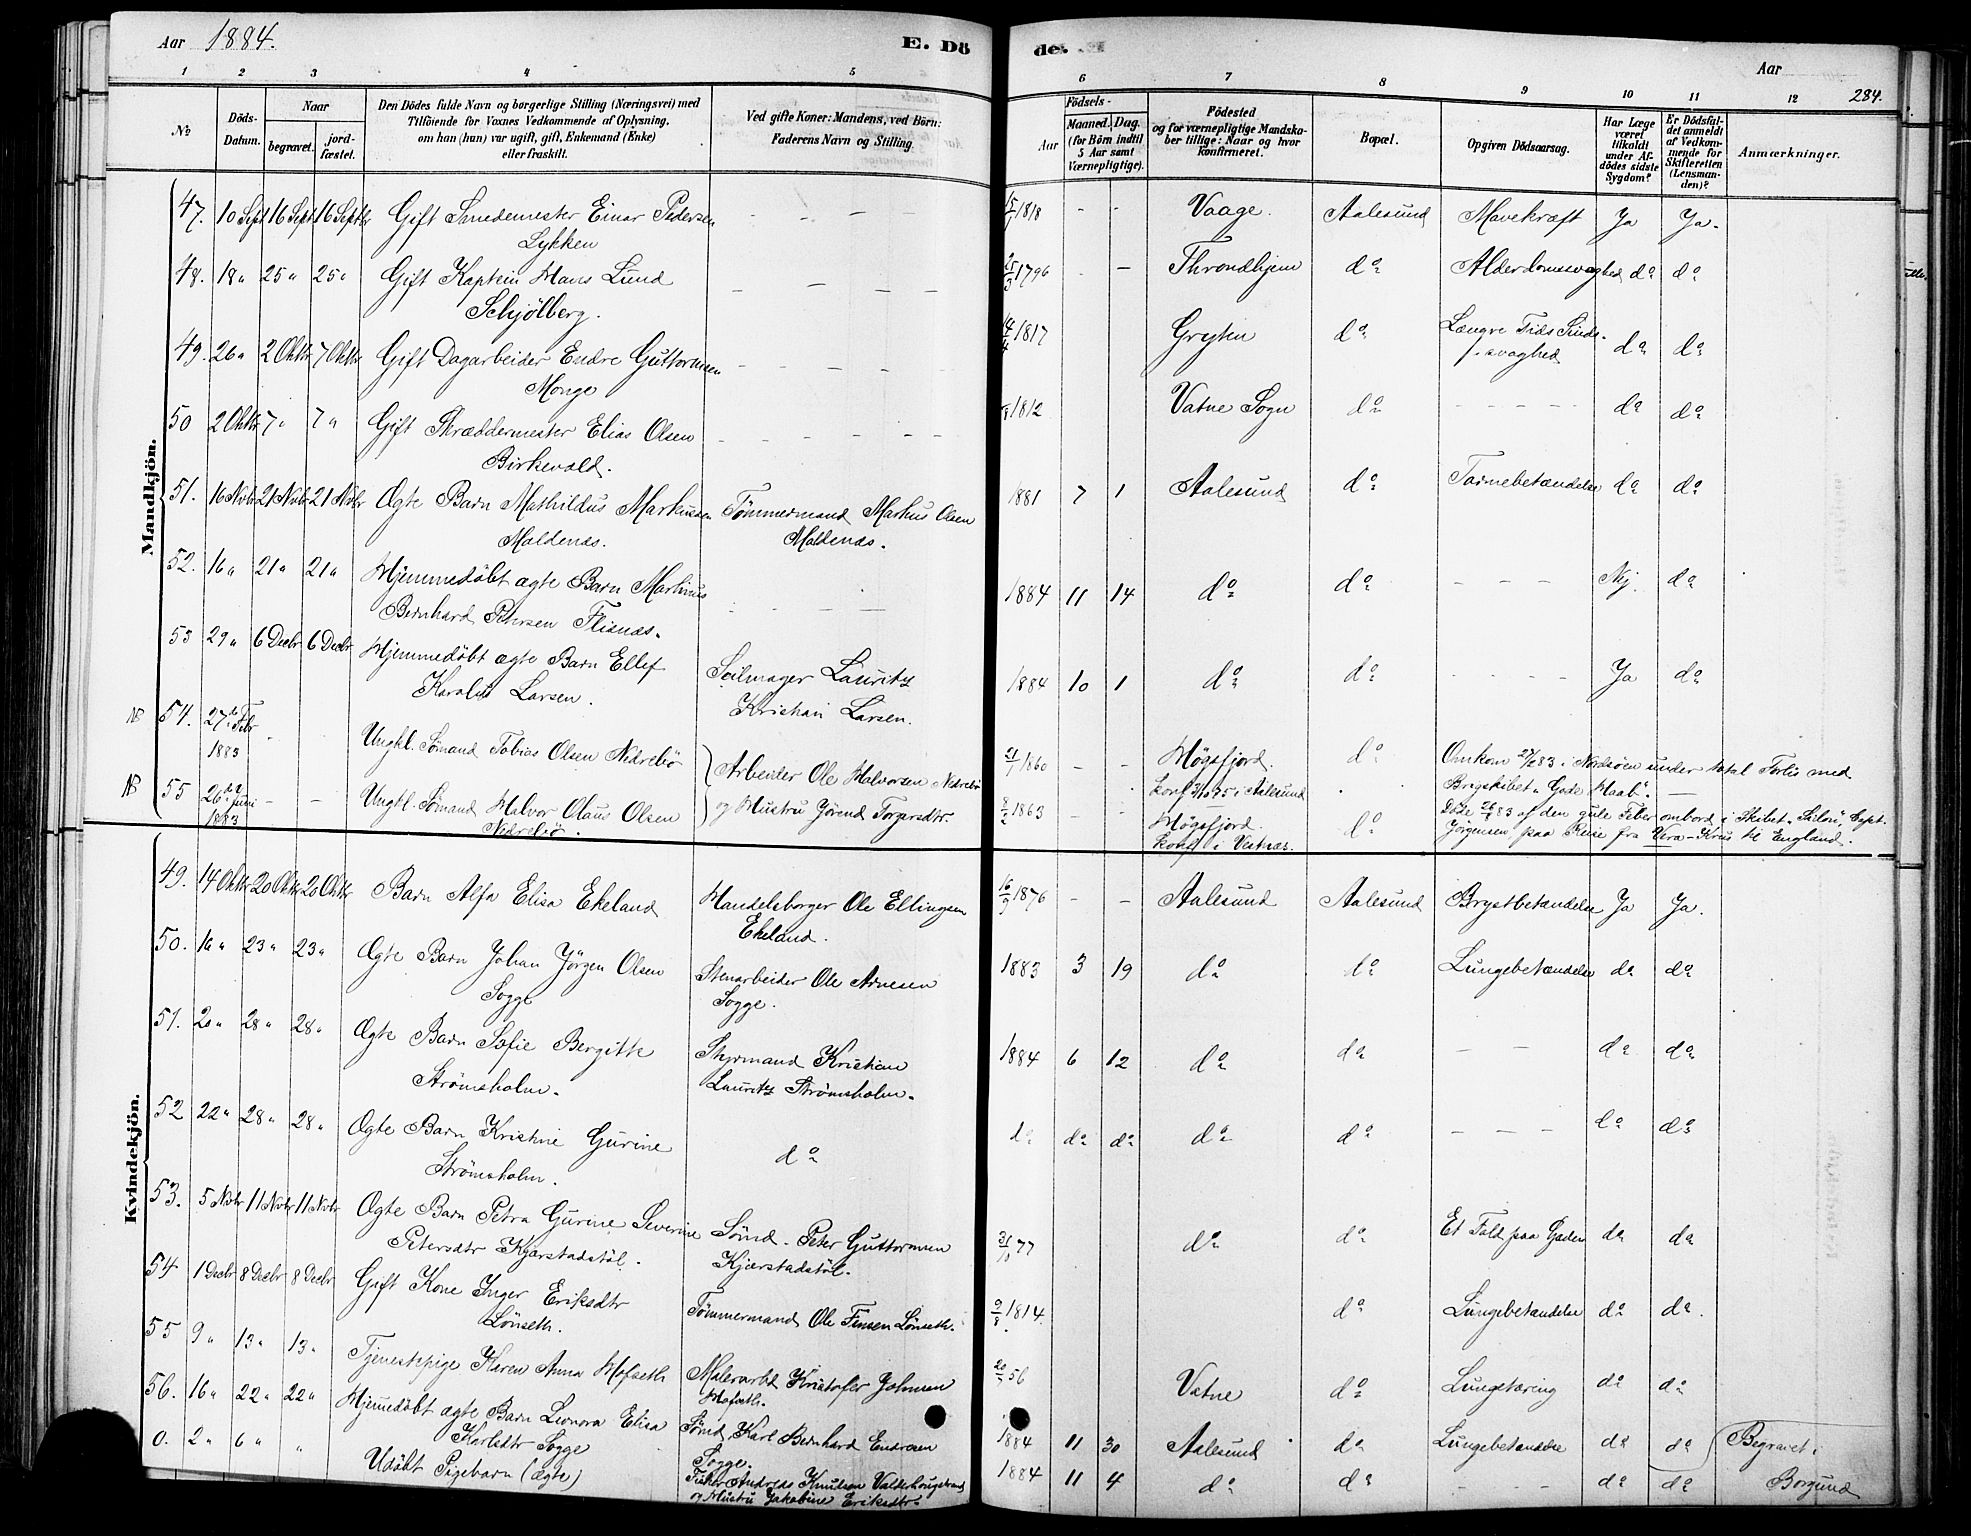 Aar 1884.
E. Dö
de.
Aar
284.
1 2 3 4 5 6 7 8 9 10 11 12
No
Döds-Datum.
Naar
begravet.
jord-fæstet.
Den Dödes fulde Navn og borgerlige Stilling (Næringsvei) med
Tilföiende for Voxnes Vedkommende af Oplysning,
om han (hun) var ugift, gift, Enkemand (Enke)
eller fraskilt.
Ved gifte Koner: Mandens, ved Börn:
Faderens Navn og Stilling.
Födsels-
Aar
Maaned. Dag.
(for Börn indtil
5 Aar samt
Værnepligtige).
Födested
og for værnepligtige Mandska-
ber tillige: Naar og hvor
konfirmeret.
Bopæl.
Opgiven Dödsaarsag.
Har Læge
været
tilkaldt
under Af-
dödes sidste
Sygdom?
Er Dödsfal-
det anmeldt
af Vedkom-
mende for
Skifteretten
(Lensman-
den)?
Anmærkninger.
Mandkjön.
47. 10 Sept 16 Sept 16 Septbr Gift Smedemester Einar Pedersen Lykken - - - 15/7 1818 - - Vaage. Aalesund Mavekræft Ja Ja.
48. 18 " 25 " 25 " Gift Kaptein Hans Lund Schjölberg. - - - - 25/3 1796 - - Throndhjem do Alderdomssvaghed do do
49. 26 " 2 Oktbr 7 Oktbr Gift Dagarbeider Endre Guttormsen Monge - - - - 14/4 1817 Gryten do Længre Tids Sinds-svaghed do do
50 2 Oktbr 7 " 7 " Gift Skræddermester Elias Olsen Birkevold. - - - - 1812 Vatne Sogn do - - - - do do
51. 16 Nvbr 21 Nvbr 21 Nvbr Ægte Barn Mathildus Markussen Maldenæs. Tømmermand Markus Olsen Maldenæs. 1881 7 1 Aalesund do Tarmebetændelse do do
52. 16 " 21 " 21 " Hjemmedöbt ægte Barn Martinus Bernhard Pehrsen Flisnæs. - - - 1884 11 14 do do - - - Nej. do
53 29 " 6 Decbr 6 Decbr Hjemmedöbt ægte Barn Ellef Karolus Larsen. Seilmager Lauritz Kristian Larsen. 1884 10 1 do do - - - - Ja do
NB 54. 27de Febr 1883 - - Ungkl. Sömand Tobias Olsen Nedrebö
NB 55 26de Juni 1883 - - Ungkl. Sömand Halvor Olaus Olsen Nedrebö.
Arbeider Ole Halvorsen Nedrebö
og Hustru Jörend Torgersdtr.
21/1 1860 - - Högsfjord. Konf 3/10 75 i Aalesund do Omkom 27/2 83 i Nordsöen under total Forlis med
Brigskibet "Gode Haab". -
8/2 1863 - - Högsfjord. Konf i Vestnæs. do Döde 26/6 83 af den gule Feber ombord i Skibet "Sailor", Capt.
Jörgensen paa Reise fra Vera-Kruz til England.
Kvindekjön.
49. 14 Oktbr 20 Oktbr 20 Oktbr Barn Alfa Elisa Ekeland Handelsborger Ole Ellingsen Ekeland. 16/9 1876 - - Aalesund Aalesund Brystbetændelse Ja Ja.
50. 16 " 23 " 23 " Ægte Barn Johan Jörgen Olsen Sogge Stenarbeider Ole Arnesen Sogge. 1883 3 19 do do Lungebetændelse do do
51. 20 " 28 " 28 " Ægte Barn Sofie Bergitte Strömsholm. Styrmand Kristian Lauritz Strömsholm. 1884 6 12 do do - - do do
52 22 " 28 " 28 " Ægte Barn Kristine Gurine Strömsholm. do do do do do do - - - do do
53. 5 Nvbr 11 Nvbr 11 Nvbr Ægte Barn Petra Gurine Severine Petersdtr Kjærstadstöl. Sömd. Peter Guttormsen Kjærstadstöl. 31/10 77 do do Et Fald paa Gaden do do
54 1 Decbr 8 Decbr 8 Decbr Gift Kone Inger Eriksdtr Lönseth. Tömmermand Ole Finsen Lönseth. 9/8 1814. do Lungebetændelse do do.
55 9 " 13 " 13 " Tjenestepige Karen Anna Hofseth Malerarbd Kristofer Johnsen Hofseth. 56 Vatne do Lungetæring do do
56. 16 " 22 " 22 " Hjemmedöbt ægte Barn Leonora Elisa Karlsdtr Sogge Sömd. Karl Bernhard Endresen Sogge. 1884 11 30 Aalesund do Lungebetændelse do do
0. 2 " 6 " " Udöbt Pigebarn (ægte) Fisker Andreas Knudsen Valderhougstrand
og Hustru Jakobine Eriksdtr. 1884 11 4 do do - - do do Begravet i
Borgund